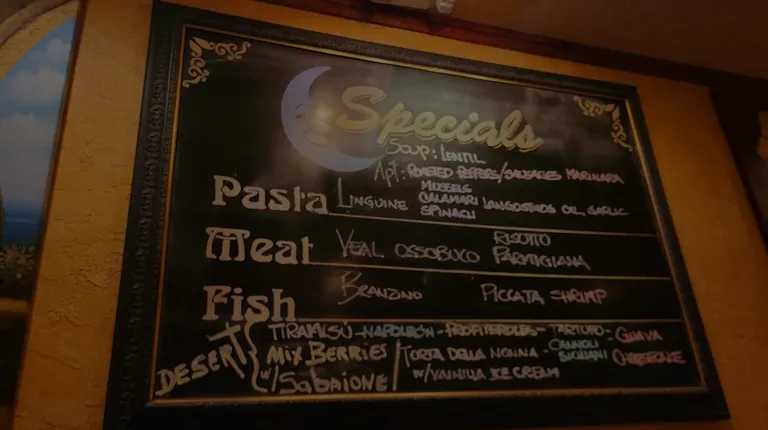 Specials
Soup: Lentil
Apt: Roasted Peppers/Sausages Marinara
Mussels
Pasta Linguine Calamari Langostinos Oil, Garlic
Spinach
Risotto
Meat Veal Ossobuco Parmigiana
Fish Branzino Piccata Shrimp
Tiramisú - Napoleon - Profiteroles - Tartufo - Guava
Cannoli Siciliani Cheesecake
Desert { Mix Berries w/ Sabaione / Torta Della Nonna - w/ Vainilla Ice Cream